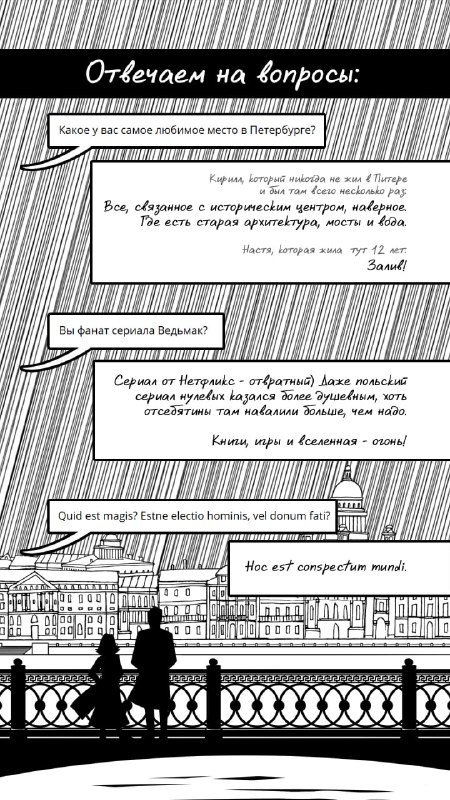 Отвечаем на вопросы:
Какое у вас самое любимое место в Петербурге?
Кирилл, который никогда не жил в Питере
и был там всего несколько раз:
Все, связанное с историческим центром, наверное.
Где есть старая архитектура, мосты и вода.
Настя, которая жила тут 12 лет:
Залив!
Вы фанат сериала Ведьмак?
Сериал от Нетфликс - отвратный) Даже польский
сериал нулевых казался более душевным, хоть
отсебятины там навалили больше, чем надо.
Книги, игры и вселенная - огонь!
Quid est magis? Estne electio hominis, vel donum fati?
Hoc est conspectum mundi.